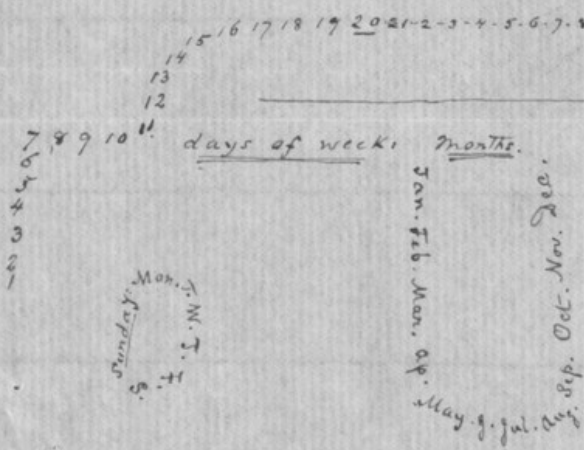 1
2
3
4
5
6
7 8 9 10 11
12
13
14
15 16 17 18 19 20 21-2-3-4-5-6-7-8
days of week. months.
Sunday. Mon. T. W. T. F. S.
Jan. Feb. Mar. ap. May. J. Jul. Aug. Sep. Oct. Nov. Dec.